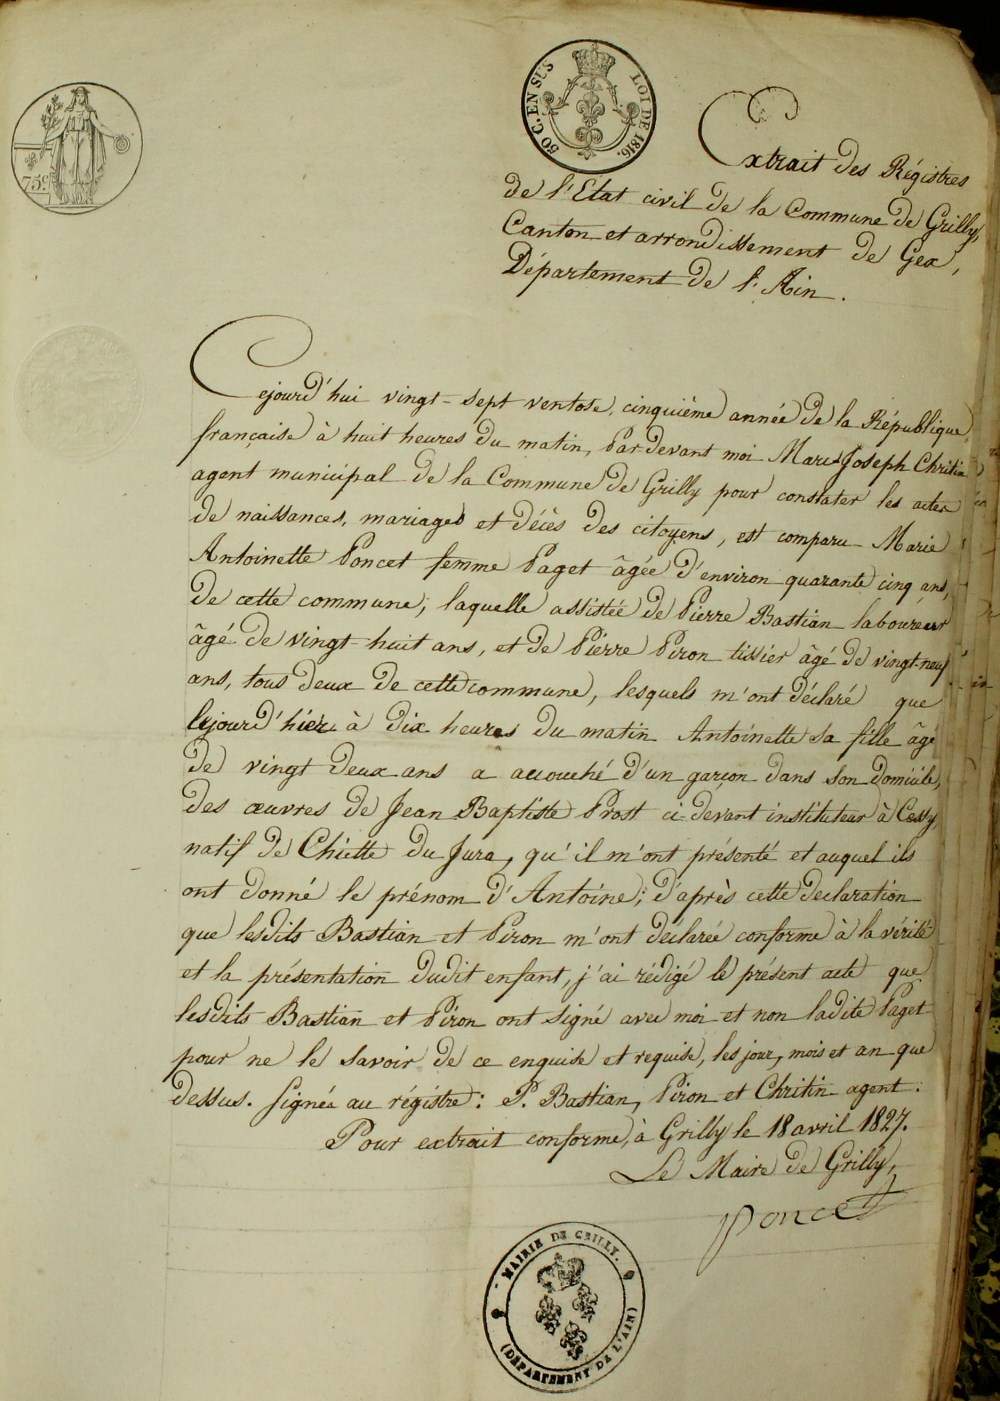 75c.
50 C. EN SUS LOI DE 1816.
Extrait des Régistres
de l'Etat civil de la Commune de Grilly,
Canton et arrondissement de Gex,
Département de l'Ain.
Cejourd'hui vingt-sept ventose, cinquième année de la République
française à huit heures du matin, Par devant moi Marc Joseph Chritin
agent municipal de la Commune de Grilly pour constater les actes
de naissances, mariages et décès des citoyens, est comparu Marie
Antoinette Poncet femme Paget âgée d'environ quarante cinq ans,
de cette commune; laquelle assistée de Pierre Bastian laboureur
âgé de vingt-huit ans, et de Pierre Piron tissier âgé de vingt-neuf
ans, tous deux de cette commune, lesquels m'ont déclaré que
lejourd'hier à dix heures du matin Antoinette sa fille âgé
de vingt deux ans a accouché d'un garçon dans son domicile,
des œuvres de Jean Baptiste Prost ci-devant instituteur à Cessy,
natif de Chiette du Jura, qu'il m'ont présenté et auquel ils
ont donné le prénom d'Antoine; d'après cette declaration
que lesdits Bastian et Piron m'ont déclarée conforme à la vérité
et la présentation dudit enfant, j'ai rédigé le présent acte que
lesdits Bastian et Piron ont signé avec moi et non ladite Paget
pour ne le savoir de ce enquise et requise, les jour, mois et an que
dessus. Signée au régistre: P. Bastian, Piron et Chritin agent.
Pour extrait conforme, à Grilly le 18 avril 1827.
Le Maire de Grilly,
Poncet
MAIRIE DE GRILLY.
(DÉPARTEMENT DE L'AIN)